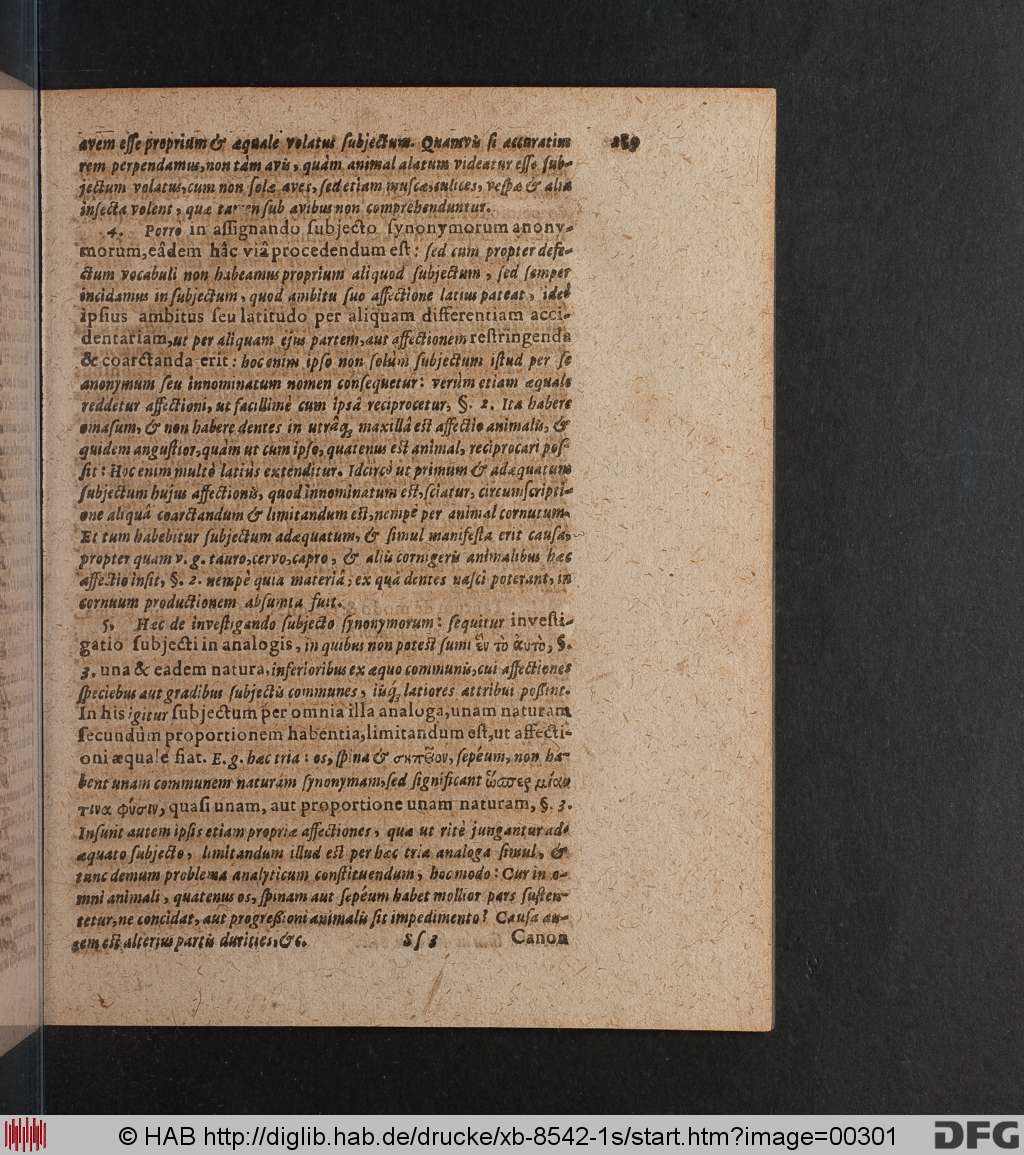 avem esse proprium & æquale volatus subjectum. Quamvis si accuratius 189
rem perpendamus, non tàm avis, quàm animal alatum videatur esse sub-
jectum volatus, cum non solæ aves, sed etiam muscæ, culices, vespæ & alia
insecta volent, quæ tamen sub avibus non comprehenduntur.
4. Porrò in assignando subjecto synonymorum anony-
morum, eâdem hâc viâ procedendum est: sed cum propter defe-
ctum vocabuli non habeamus proprium aliquod subjectum, sed semper
incidamus in subjectum, quod ambitu suo affectione latius pateat, ideò
ipsius ambitus seu latitudo per aliquam differentiam acci-
dentariam, ut per aliquam ejus partem, aut affectionem restringenda
& coarctanda erit: hoc enim ipso non solùm subjectum istud per se
anonymum seu innominatum nomen consequetur: verùm etiam æquale
reddetur affectioni, ut facillimè cum ipsâ reciprocetur, §. 2. Ita habere
omasum, & non habere dentes in utrâq; maxillâ est affectio animalis, &
quidem angustior, quàm ut cum ipso, quatenus est animal, reciprocari pos-
sit: Hoc enim multò latiùs extenditur. Idcircò ut primum & adæquatum
subjectum hujus affectionis, quod innominatum est, sciatur, circumscripti-
one aliquâ coarctandum & limitandum est, nempè per animal cornutum.
Et tum habebitur subjectum adæquatum, & simul manifesta erit causa,
propter quam v. g. tauro, cervo, capro, & aliis cornigeris animalibus hæc
affectio insit, §. 2. nempè quia materiâ, ex quâ dentes nasci poterant, in
cornuum productionem absumta fuit.
5. Hæc de investigando subjecto synonymorum: sequitur investi-
gatio subjecti in analogis, in quibus non potest sumi ἓν τὸ ἀυτὸ, §.
3. una & eadem natura, inferioribus ex æquo communis, cui affectiones
speciebus aut gradibus subjectis communes, iisq; latiores attribui possint.
In his igitur subjectum per omnia illa analoga, unam naturam
secundùm proportionem habentia, limitandum est, ut affecti-
oni æquale fiat. E. g. hæc tria: os, spina & σηπῖον, sepéum, non ha-
bent unam communem naturam synonymam, sed significant ὥσπερ μίαν
τινα φύσιν, quasi unam, aut proportione unam naturam, §. 3.
Insunt autem ipsis etiam propriæ affectiones, quæ ut ritè jungantur ad-
æquato subjecto, limitandum illud est per hæc tria analoga simul, &
tunc demum problema analyticum constituendum, hoc modo: Cur in o-
mni animali, quatenus os, spinam aut sepéum habet mollior pars susten-
tetur, ne concidat, aut progressioni animalis sit impedimento? Causa au-
tem est alterius partis durities, &c. Ss 3 Canon
© HAB http://diglib.hab.de/drucke/xb-8542-1s/start.htm?image=00301
DFG